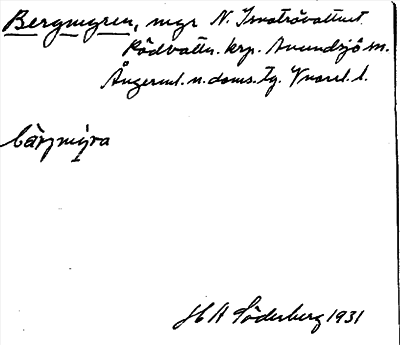 Bergmyren, myr N. Smaströvattnet
Rödvattn. krp. Anundsjö sn.
Ångerml. n. doms. tg. Vnorrl. l.
bä̀rjmýra
H A Söderberg 1931